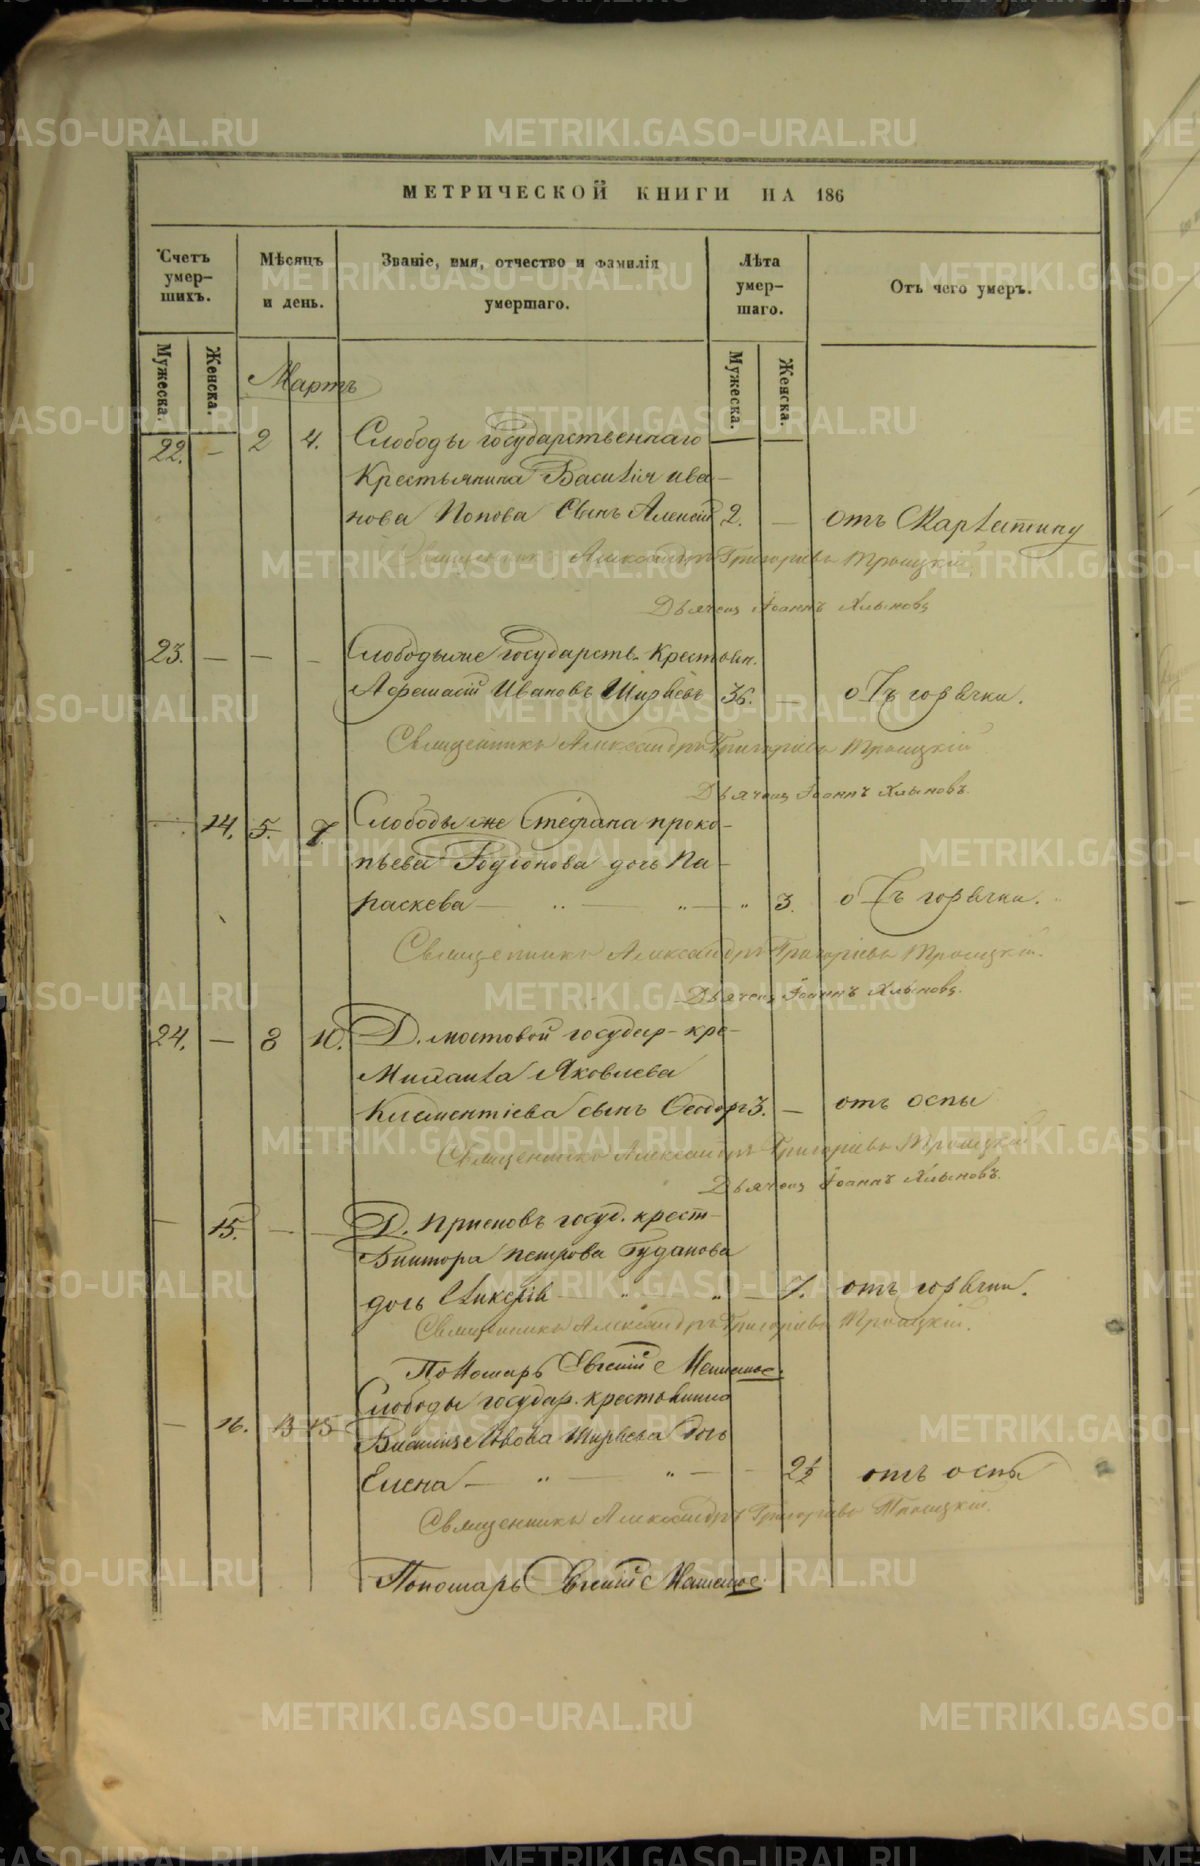 МЕТРИЧЕСКОЙ КНИГИ НА 186
Счетъ умер-шихъ.
Мѣсяцъ и день.
Званіе, имя, отчество и фамилія умершаго.
Лѣта умер-шаго.
Отъ чего умеръ.
Мужеска. Женска.
Мужеска. Женска.
Мартъ
22. — 2 4. Слободы государственнаго
Крестьянина Василія ива-
нова Попова Сынъ Алексій 2. — отъ Скарлатину
Священникъ Александръ Григорьевъ Троицкій
Дьячекъ Іоаннъ Хлыновъ
23. — — — Слободы же государств. Крестьян.
Ивановъ Ширяевъ 36. — отъ горячки.
Священникъ Александръ Григорьевъ Троицкій
Дьячекъ Іоаннъ Хлыновъ.
— 14. 5. 7. Слободы же Стефана проко-
пьева Родіонова дочь Па-
раскева — „ — „ — „ 3. отъ горячки.
Священникъ Александръ Григорьевъ Троицкій.
Дьячекъ Іоаннъ Хлыновъ.
24. — 8 10. Д. мостовой государ- кре-
Михаила Яковлева
Климентіева сынъ Ѳеодоръ 3. — отъ оспы
Священникъ Александръ Григорьевъ Троицкій
Дьячекъ Іоаннъ Хлыновъ.
— 15. — — Д. госуд. крест-
Виктора петрова Гуданова
дочь Гликерія — „ „ — 7. отъ горячки.
Священникъ Александръ Григорьевъ Троицкій.
Пономарь Евгеній
— 16. 13 15 Слободы государ. крестьянина
Ширяева дочь
Елена — „ — „ — - 2½ отъ оспы
Священникъ Александръ Григорьевъ Троицкій.
Пономарь Евгеній
METRIKI.GASO-URAL.RU